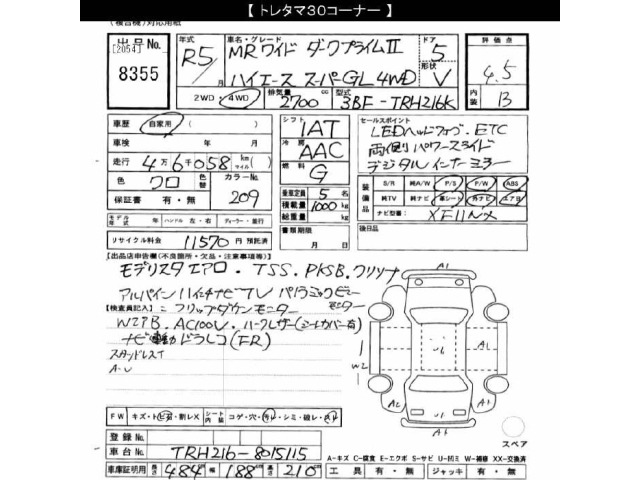 【 トレタマ30コーナー 】
(複合機)対応用紙
出品No. [2054] 8355
年式 R5/ 月
車名・グレード MRワイド ダークプライムⅡ
ハイエース スーパーGL 4WD
ドア 5
形状 V
評価点 4.5
内装 B
2WD・4WD 排気量 2700 cc 型式 3BF-TRH216K
車歴 自家用 ( )
車検 年 月
走行 4万6千058 km(マイル)
色 クロ 色替 カラーNo. 209
保証書 有・無
モデル年式 年 ハンドル 左・右 ディーラー・並行
リサイクル料金 11570円 預託済
シフト IAT
冷房 AAC
燃料 G
乗車定員 5 名
積載量 1000 kg
総重量 kg
書類期限 月 日
セールスポイント
LEDヘッドフォグ・ETC
両側パワースライド
デジタルインナーミラー
装備品 S/R 純A/W P/S P/W ABS
純TV 純ナビ 革シート 外ナビ エアB
ナビ型番 XF11NX
後日品
【出品店申告欄(不良箇所・欠品・注意事項等)】
モデリスタエアロ・TSS.PKSB.クリソナ
アルパイン11インチナビTV パノラミックビューモニター
【検査員記入】 フリップダウンモニター
WエアB.AC100V.ハーフレザー(シートカバー有)
ナビ連動ドラレコ(FR)
A1
U6
W2
A2
A1
スペア
FW キズ・ト・割レX シート内装 コゲ・穴・汚レ・シミ・破レ・スレ
登録No.
車台No. TRH216-8015115
車庫証明用 長さ 484 幅 188 高さ 210
A-キズ C-腐食 E-エクボ S-サビ U-凹ミ W-補修 XX-交換済
工具 有・無 ジャッキ 有・無